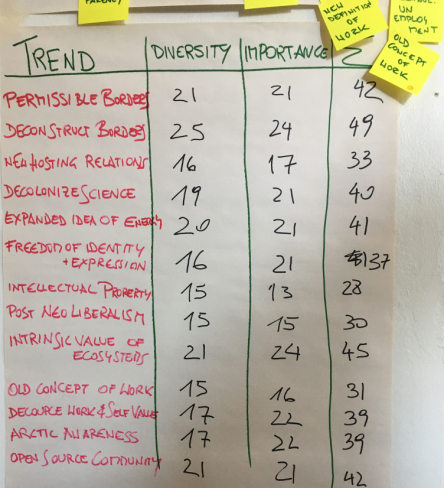 NEW
DEFINITION
OF
WORK
UN
EMPLOY
MENT
OLD
CONCEPT
OF
WORK
TREND DIVERSITY IMPORTANCE Σ
PERMISSIBLE BORDERS 21 21 42
DECONSTRUCT BORDERS 25 24 49
NEW HOSTING RELATIONS 16 17 33
DECOLONIZE SCIENCE 19 21 40
EXPANDED IDEA OF ENERGY 20 21 41
FREEDOM OF IDENTITY
+ EXPRESSION 16 21 37
INTELLECTUAL PROPERTY 15 13 28
POST NEO LIBERALISM 15 15 30
INTRINSIC VALUE OF
ECOSYSTEMS 21 24 45
OLD CONCEPT OF WORK 15 16 31
DECOUPLE WORK & SELF VALUE 17 22 39
ARCTIC AWARENESS 17 22 39
OPEN SOURCE COMMUNITY 21 21 42